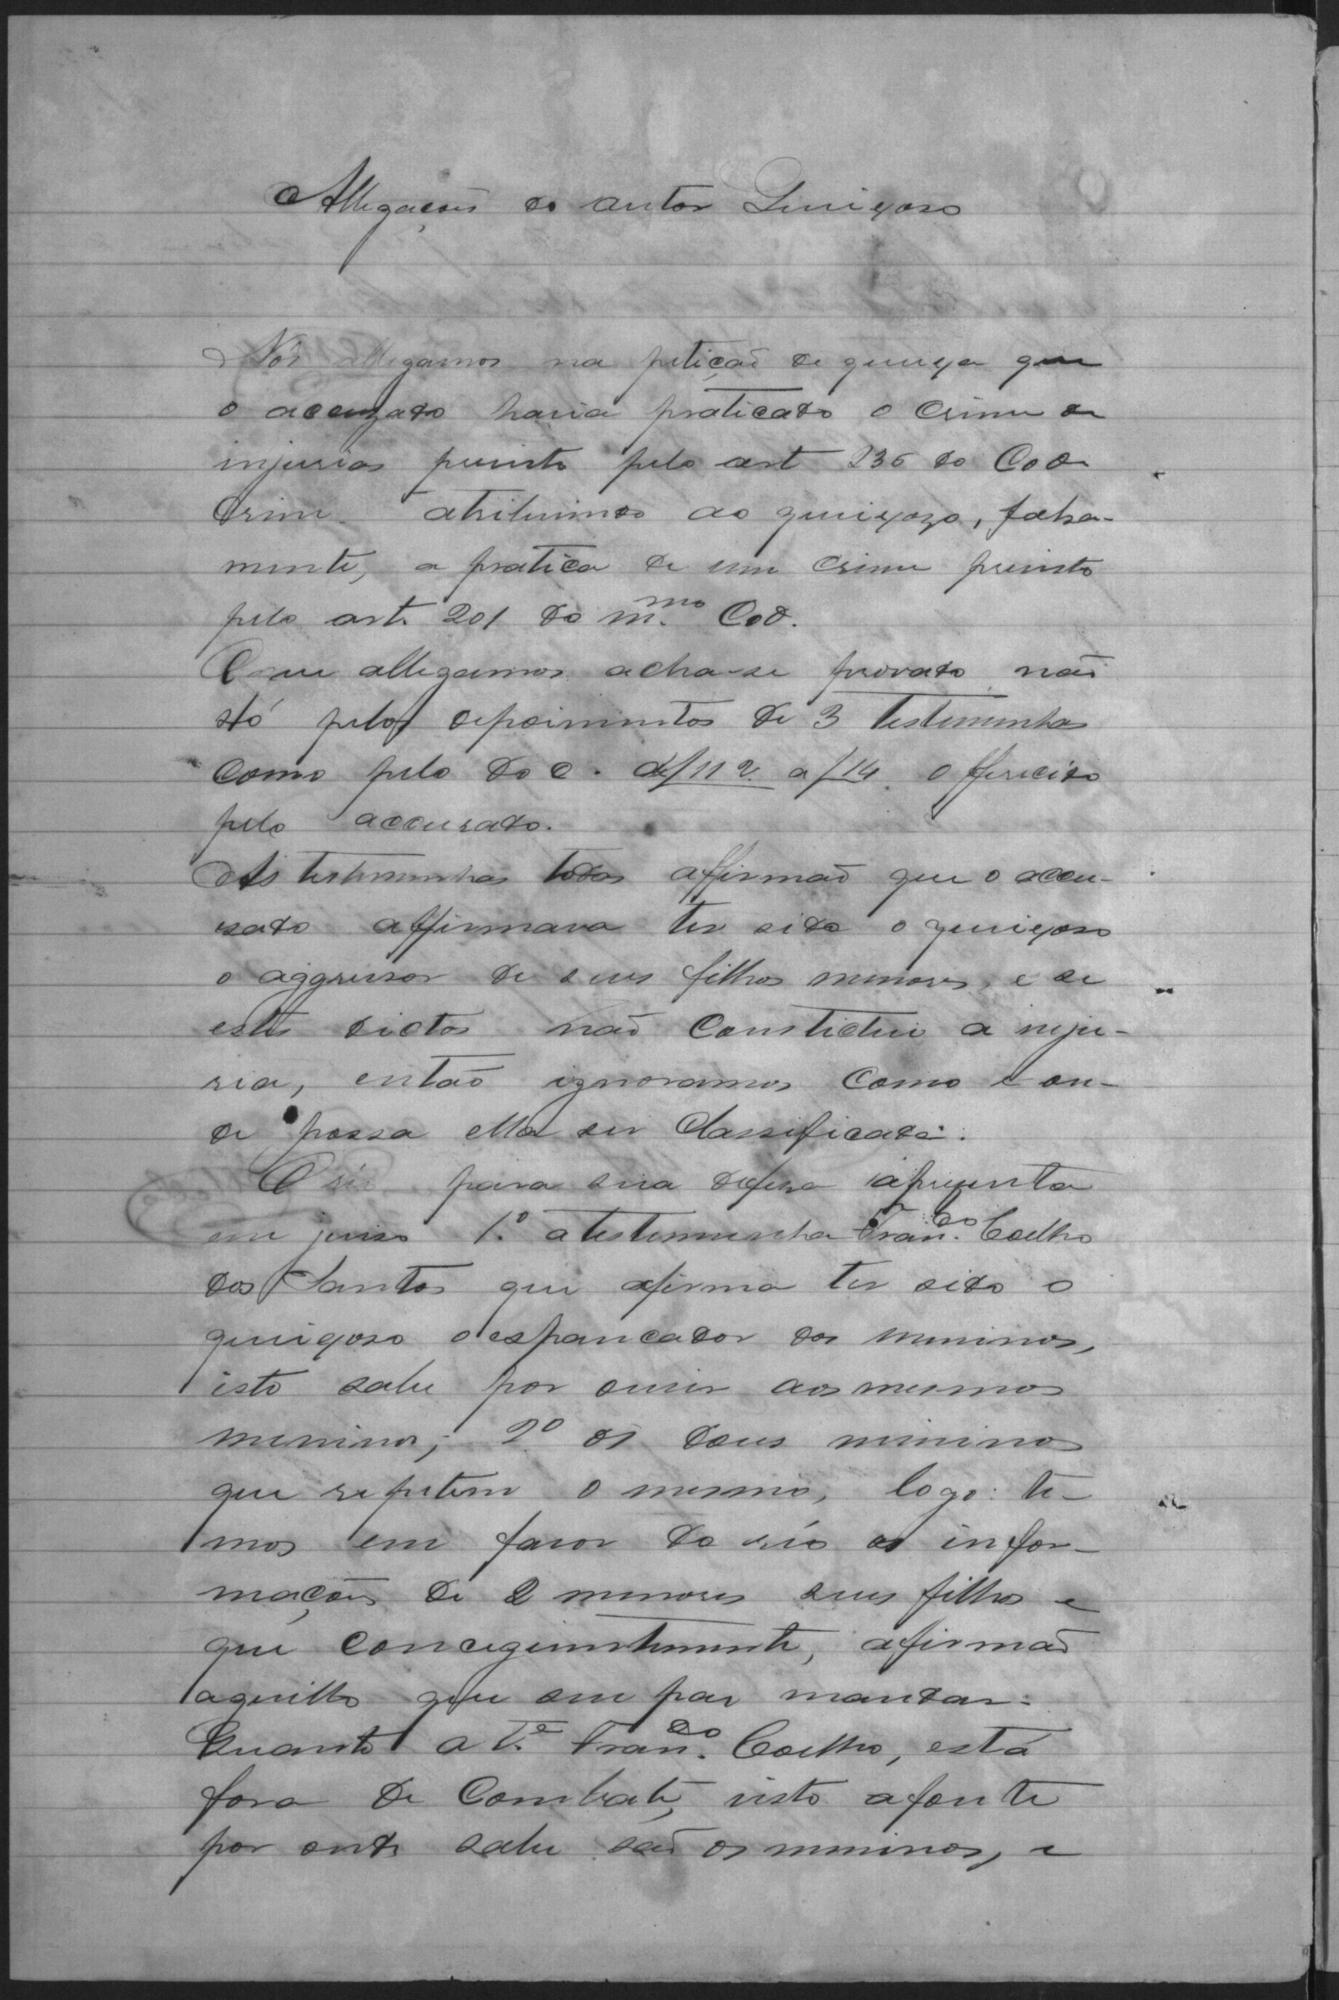 Allegações do autor Queixoso
Nós allegamos na petição de queixa que
o accuzado havia praticado o crime de
injurias previsto pelo art 236 do Cod.
Crim. atribuindo ao queixozo, falsa-
mente, a pratica de um crime previsto
pelo art. 201 do m.mo Cod.
O que allegamos acha-se provado não
só pelos depoimentos de 3 testemunhas
como pelo doc. de f 11 v. a f 14. offerecido
pelo accusado.
As testemunhas todas affirmão que o accu-
sado affirmava ter sido o queixoso
o aggressor de seus filhos menores, e se
estes dictos não constictue a inju-
ria, então ignoramos como e on-
de possa ella ser classificada.
O réo para sua defesa apresenta
em juiso 1.º a testemunha Fran.co Coelho
dos Santos que afirma ter sido o
queixoso o espancador dos meninos,
isto sabe por ouvir aos mesmos
meninos; 2º os dous meninos
que repetem o mesmo, logo: te-
mos em favor do réo as infor-
mações de 2 menores seus filhos e
que conceguintemente, afirmão
aquillo que seu pae mandar.
Quanto a T.e Fran.co Coelho, está
fora de combate, visto a fonte
por onde sabe são os meninos, e